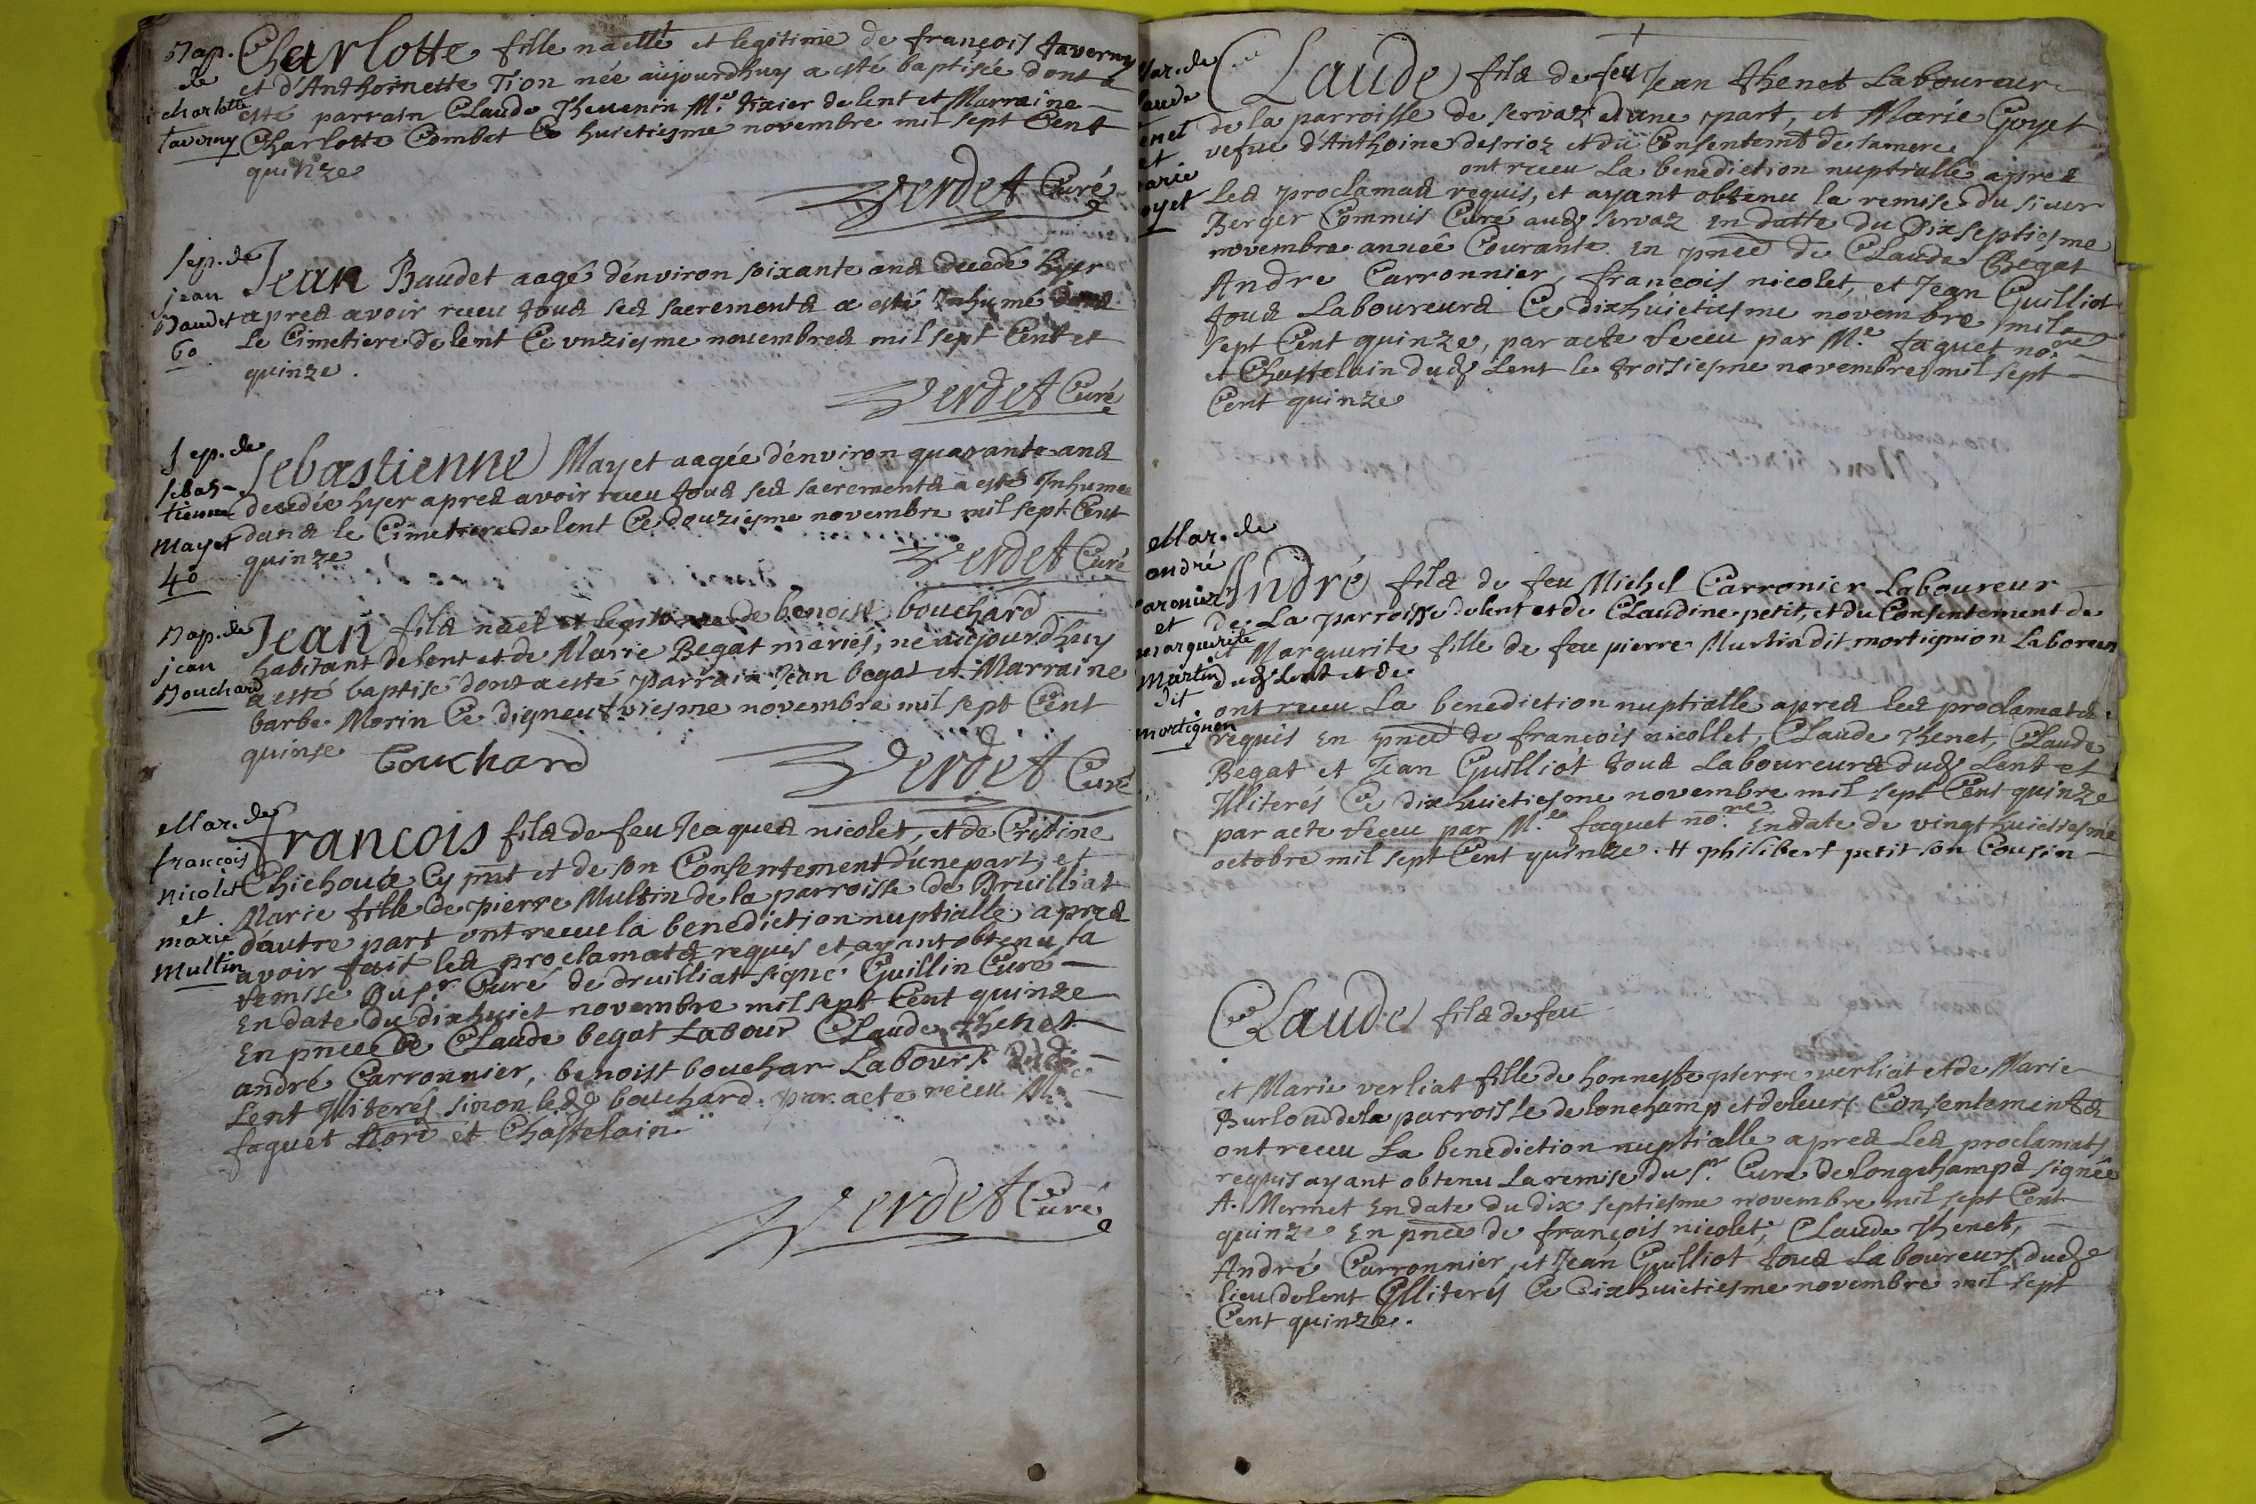 Bap.
de
charlotte
Taverny
Charlotte fille naelle et legitime de françois Taverny
et d'Anthoinette Tion née aujourdhuy a esté baptisée dont a
esté parrain Claude Thevenin Me. tixier de lent et Marraine
Charlotte Combet Ce huictiesme novembre mil sept Cent
quinze
Verdet Curé
sep. de
jean
Baudet
60
Jean Baudet aagé d'environ soixante ans decedé hyer
apres avoir receu tous ses sacrements a esté Inhumé dans
le Cimetiere de lent Ce vnziesme novembres mil sept Cent et
quinze.
Verdet Curé
sep. de
sebas-
tienne
Mayet
40
Sebastienne Mayet aagée d'environ quarante ans
decedée hyer apres avoir receu tous ses sacrements a esté Inhumee
dans le Cimetiere de lent Ce douziesme novembre mil sept Cent
quinze
Verdet Curé
Bap. de
jean
Bouchard
Jean fils nael et legitime de benoist bouchard
habitant de lent et de Marie Begat mariés, né aujourdhuy
a esté baptisé dont a esté parrain Jean begat et Marraine
barbe Morin Ce digneufviesme novembre mil sept Cent
quinse
Bouchard
Verdet Curé
Mar. de
françois
nicolet
et
marie
Multin
francois fils de feu Jaques nicolet, et de Critine
Chichoux Cy pnt et de son Consentement d'une part, et
Marie fille de pierre Multin de la parroisse de Druilliat
d'autre part ont receu la benediction nuptialle apres
avoir fait les proclamats requis et ayant obtenu la
remise Du sr. Curé de druilliat signé Guillin Curé
En date du dixhuict novembre mil sept Cent quinze
En pnce de Claude begat Labour Claude thenet
andré Carronnier, benoist bouchar Labours. dud
Lent Illiterés sinon led bouchard. par acte receu Me
faguet Nore et Chastelain
Verdet Curé
Mar. de
Claude
Tenet
et
Marie
Goyet
Claude fils de feu Jean Thenet Laboureur
de la parroisse de servaz d'une part, et Marie Goyet
vefue d'Anthoine desrioz et du Consentemt de samere
ont receu La benediction nuptialle apres
Les proclamas requis, et ayant obtenu la remise du sieur
Berger Commis Curé aud servaz in datte du Dixseptiesme
novembre année Courante in pnce de Claude Begat
Andre Carronnier, francois nicolet, et Jean Guilliot
tous Laboureurs Ce dixhuictiesme novembre mil
sept Cent quinze, par acte receu par Me. faguet nore
et Chastelain dud Lent le troisiesme novembre mil sept
Cent quinze
Mar. de
andré
Caronier
et
marguerite
Martin
dit
mortignon
André fils de feu Michel Carronier Laboureur
de La parroisse de lent et de Claudine petit, et du Consentement de
Marguerite fille de feu pierre Martin dit mortignon Laboreur
dud Lent et de
ont receu La benediction nuptialle apres les proclamats
requis En pnce de francois nicollet, Claude Thenet, Claude
Begat et Jean Guilliot tous Laboureurs dud Lent et
Illiterés Ce dixhuictiesme novembre mil sept Cent quinze
par acte receu par Me. faguet nore. En date de vingt huictiesme
octobre mil sept Cent quinze. # philibert petit son Cousin
Claude fils de feu
et Marie verliat fille de honneste pierre verliat et de Marie
Burloud de la parroisse de lonchamp et de leurs Consentements
ont receu La benediction nuptialle apres Les proclamats
requis ayant obtenu La remise du sr. Curé de Longchamps signée
A. Mermet En date du dix septiesme novembre mil sept Cent
quinze En pnce de françois nicolet, Claude Thenet,
André Carronnier, et Jean Guilliot tous Laboureurs dud
lieu de lent Illiterés Ce Dixhuictiesme novembre mil sept
Cent quinze.